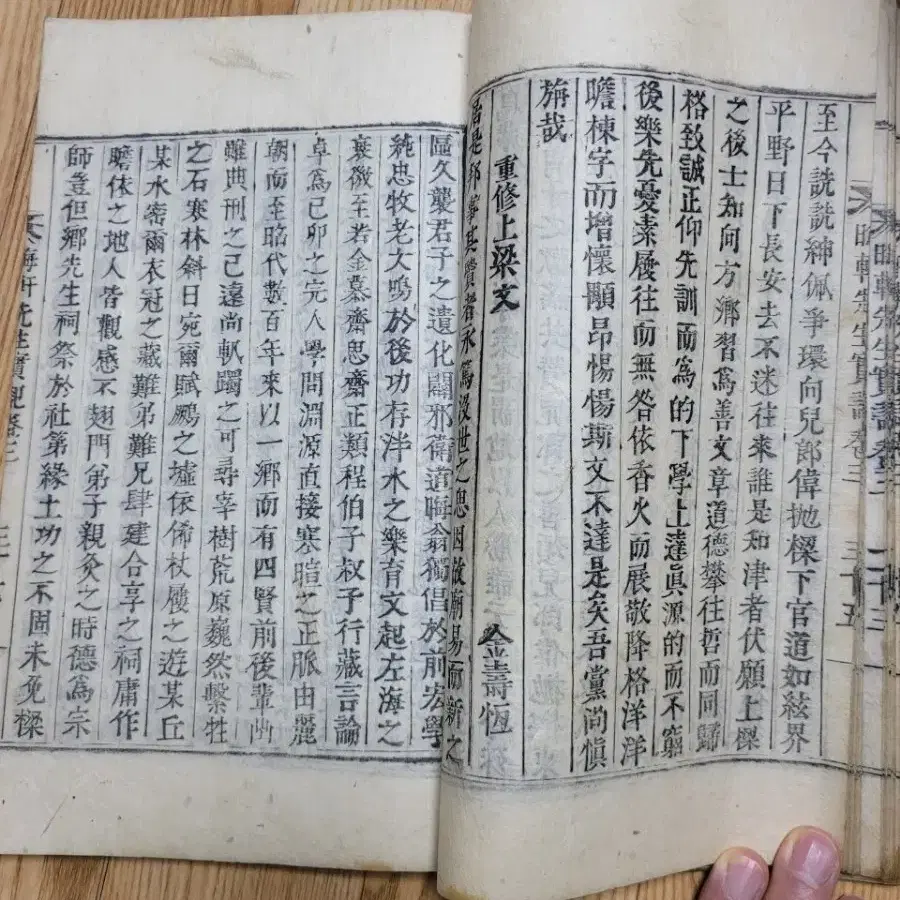 至今詵詵紳佩爭環向兒郎偉拋樑下官道如絃界
平野日下長安去不迷往來誰是知津者伏願上樑
之後士知向方鄉習爲善文章道德攀往哲而同歸
格致誠正仰先訓而爲的下學上達眞源的而不窮
後樂先憂素履往而無咎依香火而展敬降格洋洋
瞻棟宇而增懷顒昂惕惕斯文不達是矣吾黨尚愼
旃哉
重修上梁文
金壽恆
居是邦 其賢者永爲沒世之思因 廟 而新之
區久襲君子之遺化闢邪衛道晦翁獨倡於前宏學
純忠牧老大鳴於後功存泮水之樂育文起左海之
衰微至若金慕齋思齋正類程伯子叔子行藏言論
卓爲己卯之完人學問淵源直接寒暄之正脈由麗
朝而至昭代數百年來以一鄉而有四賢前後輩出
雖典刑之已遠尚軌躅之可尋宰樹荒原巍然繫牲
之石寒林斜日宛爾賦鵩之墟依俙杖屨之遊某丘
某水密爾衣冠之藏難弟難兄肆建合享之祠庸作
瞻依之地人皆觀感不翅門弟子親灸之時德爲宗
師豈但鄉先生祠祭於社第緣土功之不固未免樑
軒先生實記卷三